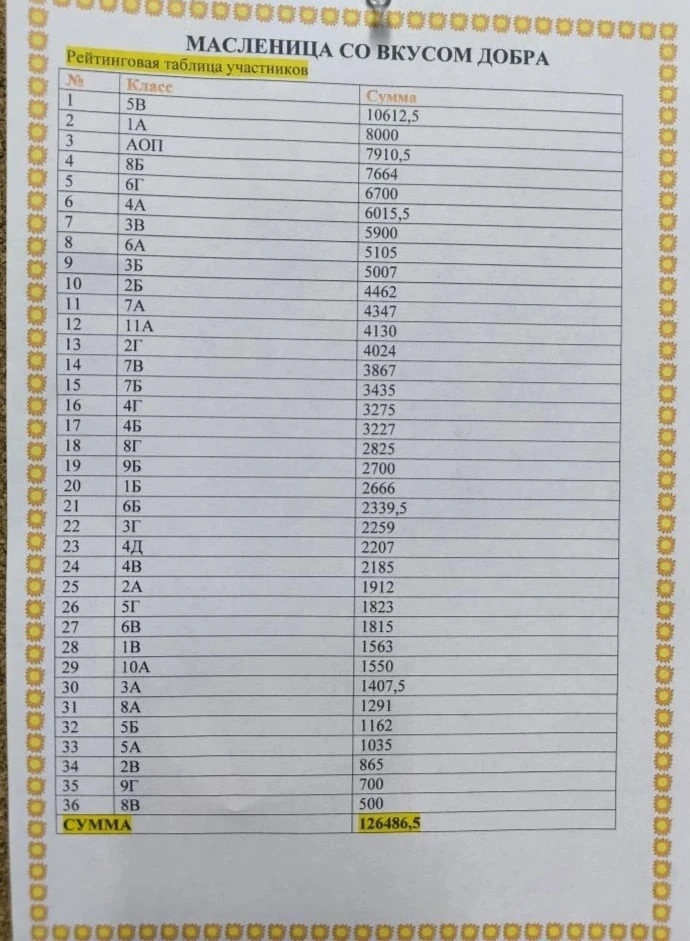 МАСЛЕНИЦА СО ВКУСОМ ДОБРА
Рейтинговая таблица участников
№ Класс Сумма
1 5В 10612,5
2 1А 8000
3 АОП 7910,5
4 8Б 7664
5 6Г 6700
6 4А 6015,5
7 3В 5900
8 6А 5105
9 3Б 5007
10 2Б 4462
11 7А 4347
12 11А 4130
13 2Г 4024
14 7В 3867
15 7Б 3435
16 4Г 3275
17 4Б 3227
18 8Г 2825
19 9Б 2700
20 1Б 2666
21 6Б 2339,5
22 3Г 2259
23 4Д 2207
24 4В 2185
25 2А 1912
26 5Г 1823
27 6В 1815
28 1В 1563
29 10А 1550
30 3А 1407,5
31 8А 1291
32 5Б 1162
33 5А 1035
34 2В 865
35 9Г 700
36 8В 500
СУММА 126486,5